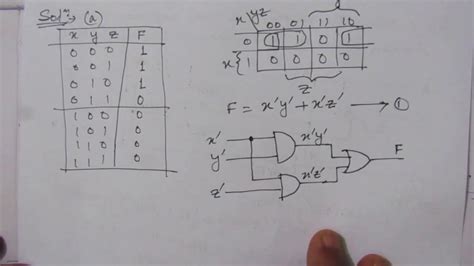 Solnː (a)
x y z F
0 0 0 1
0 0 1 1
0 1 0 1
0 1 1 0
1 0 0 0
1 0 1 0
1 1 0 0
1 1 1 0
x yz 00 01 11 10
0 1 1 0 1
x { 1 0 0 0 0
z
F = x'y' + x'z' → ①
x' x'y'
y' F
z' x'z'